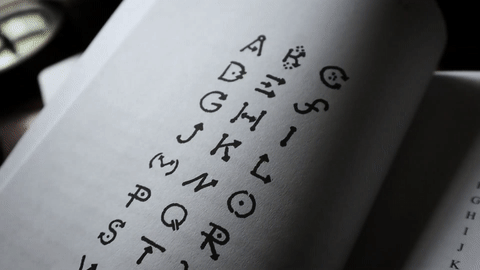 A B C
D E F
G H I
J K L
M N O
P Q R
S T
G
H
I
J
K